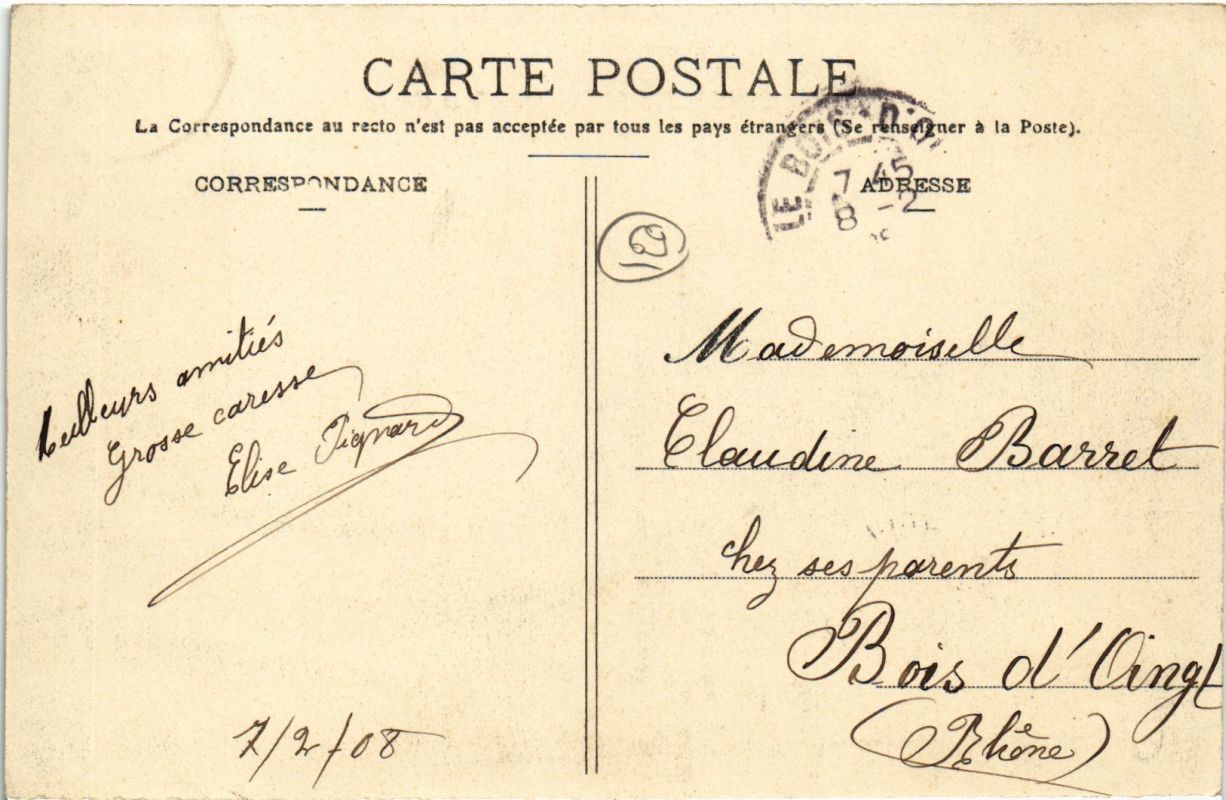 CARTE POSTALE
La Correspondance au recto n'est pas acceptée par tous les pays étrangers (Se renseigner à la Poste).
CORRESPONDANCE
Meilleurs amitiés
Grosse caresse
Elise Pignard
7/2/08
LE BOIS D'O
7 45
8 -2
ADRESSE
Mademoiselle
Claudine Barret
chez ses parents
Bois d'Oingt
(Rhône)